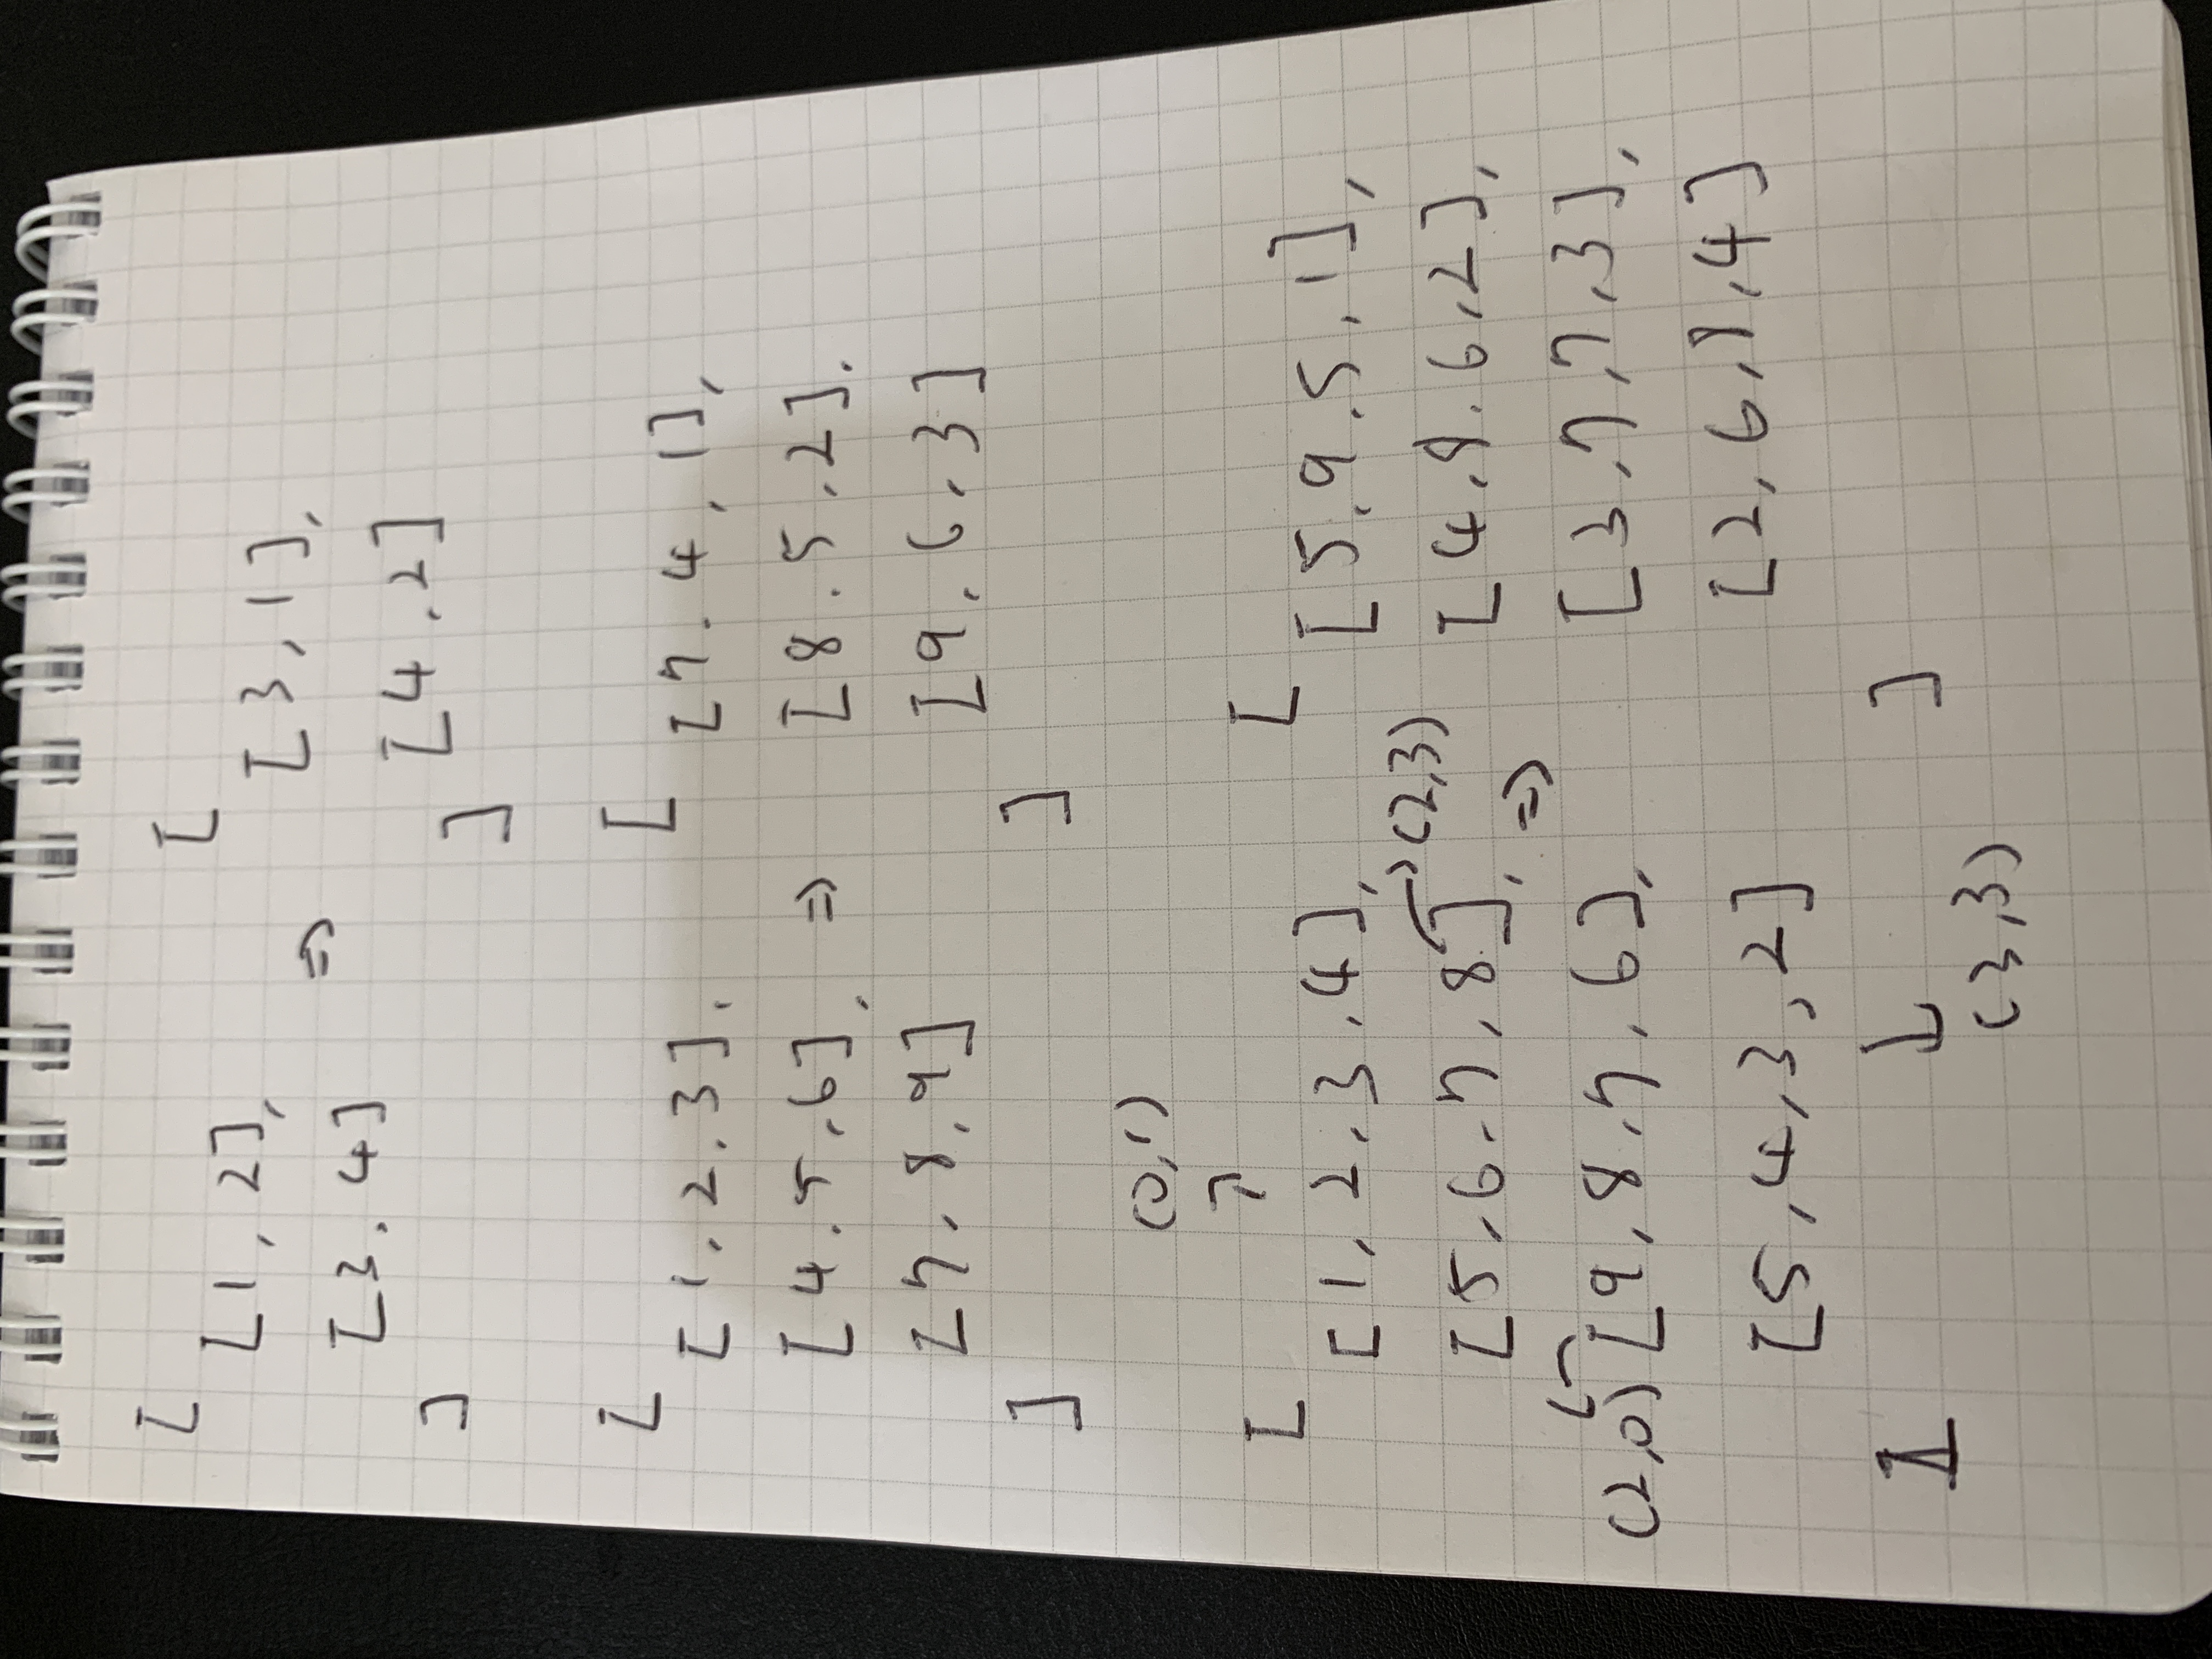 [
[1, 2],
[3, 4]
]
=>
[
[3, 1],
[4, 2]
]
[
[1, 2, 3],
[4, 5, 6],
[7, 8, 9]
]
=>
[
[7, 4, 1],
[8, 5, 2],
[9, 6, 3]
]
(0,1)
[
[1, 2, 3, 4],
[5, 6, 7, 8],
(2,3)
(2,0)
[9, 8, 7, 6],
[5, 4, 3, 2]
]
(3,3)
=>
[
[5, 9, 5, 1],
[4, 8, 6, 2],
[3, 7, 7, 3],
[2, 6, 8, 4]
]